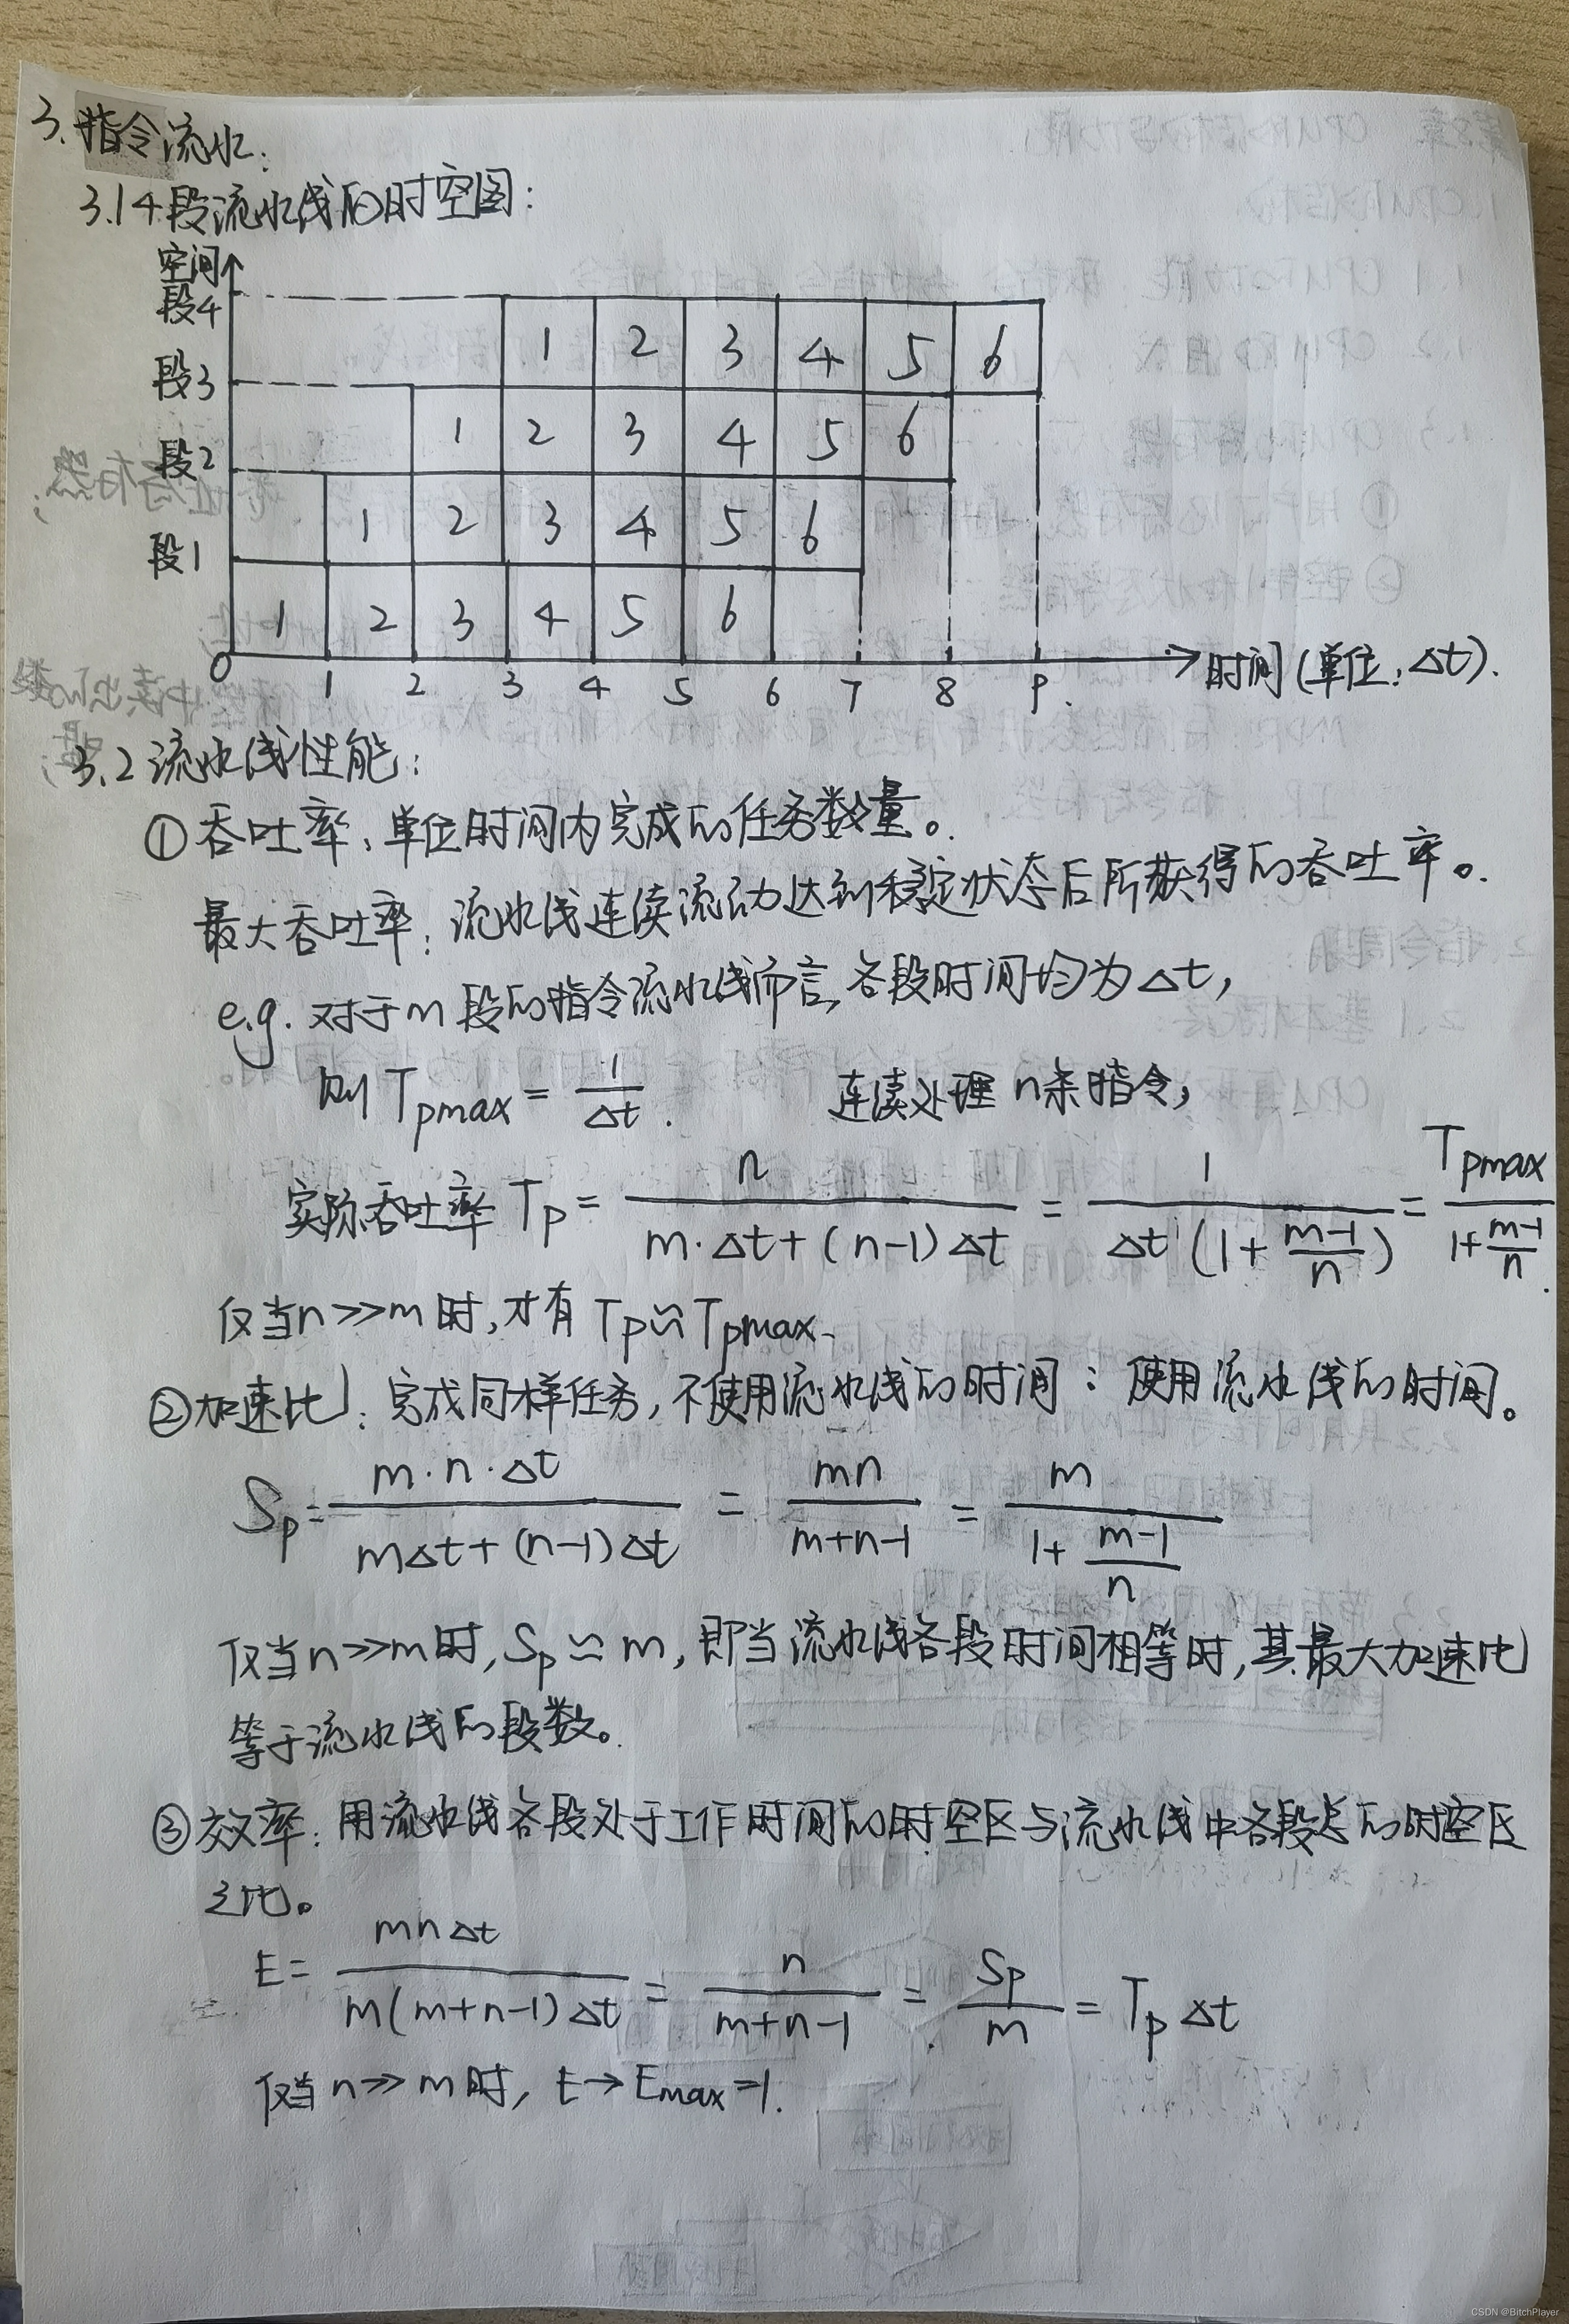 3.指令流水:
3.1 4段流水线的时空图:
空间
段4
1 2 3 4 5 6
段3
1 2 3 4 5 6
段2
1 2 3 4 5 6
段1
1 2 3 4 5 6
0 1 2 3 4 5 6 7 8 9. 时间(单位:Δt).
3.2 流水线性能:
①吞吐率:单位时间内完成的任务数量。
最大吞吐率:流水线连续流动达到稳定状态后所获得的吞吐率。
e.g. 对于m段的指令流水线而言,各段时间均为Δt,
则 Tpmax = 1/Δt. 连续处理n条指令,
实际吞吐率 Tp = n/(m·Δt+(n-1)Δt) = 1/(Δt(1+(m-1)/n)) = Tpmax/(1+(m-1)/n).
仅当n>>m时,才有Tp≈Tpmax.
②加速比:完成同样任务,不使用流水线的时间:使用流水线的时间。
Sp = m·n·Δt/(mΔt+(n-1)Δt) = mn/(m+n-1) = m/(1+(m-1)/n)
仅当n>>m时,Sp≈m,即当流水线各段时间相等时,其最大加速比
等于流水线的段数。
③效率:用流水线各段处于工作时间的时空区与流水线中各段总的时空区
之比。
E = mnΔt/(m(m+n-1)Δt) = n/(m+n-1) = Sp/m = TpΔt
仅当n>>m时,E→Emax=1.
CSDN @BitchPlayer